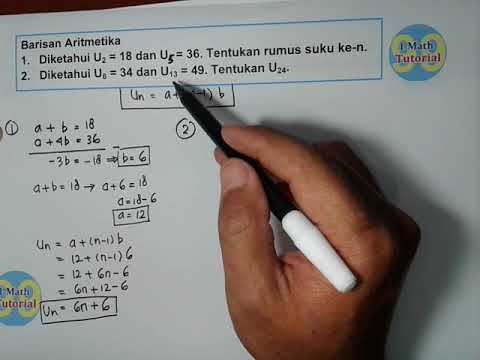 Barisan Aritmetika
1. Diketahui U₂ = 18 dan U₅ = 36. Tentukan rumus suku ke-n.
2. Diketahui U₈ = 34 dan U₁₃ = 49. Tentukan U₂₄.
I Math
Tutorial
Un = a+(n-1) b
①
a + b = 18
a + 4b = 36
-3b = -18 ⇒ b = 6
a+b = 18 → a+6 = 18
a = 18-6
a = 12
Un = a+(n-1) b
= 12+(n-1) 6
= 12 + 6n - 6
= 6n + 12 - 6
Un = 6n + 6
②
I Math
Tutorial